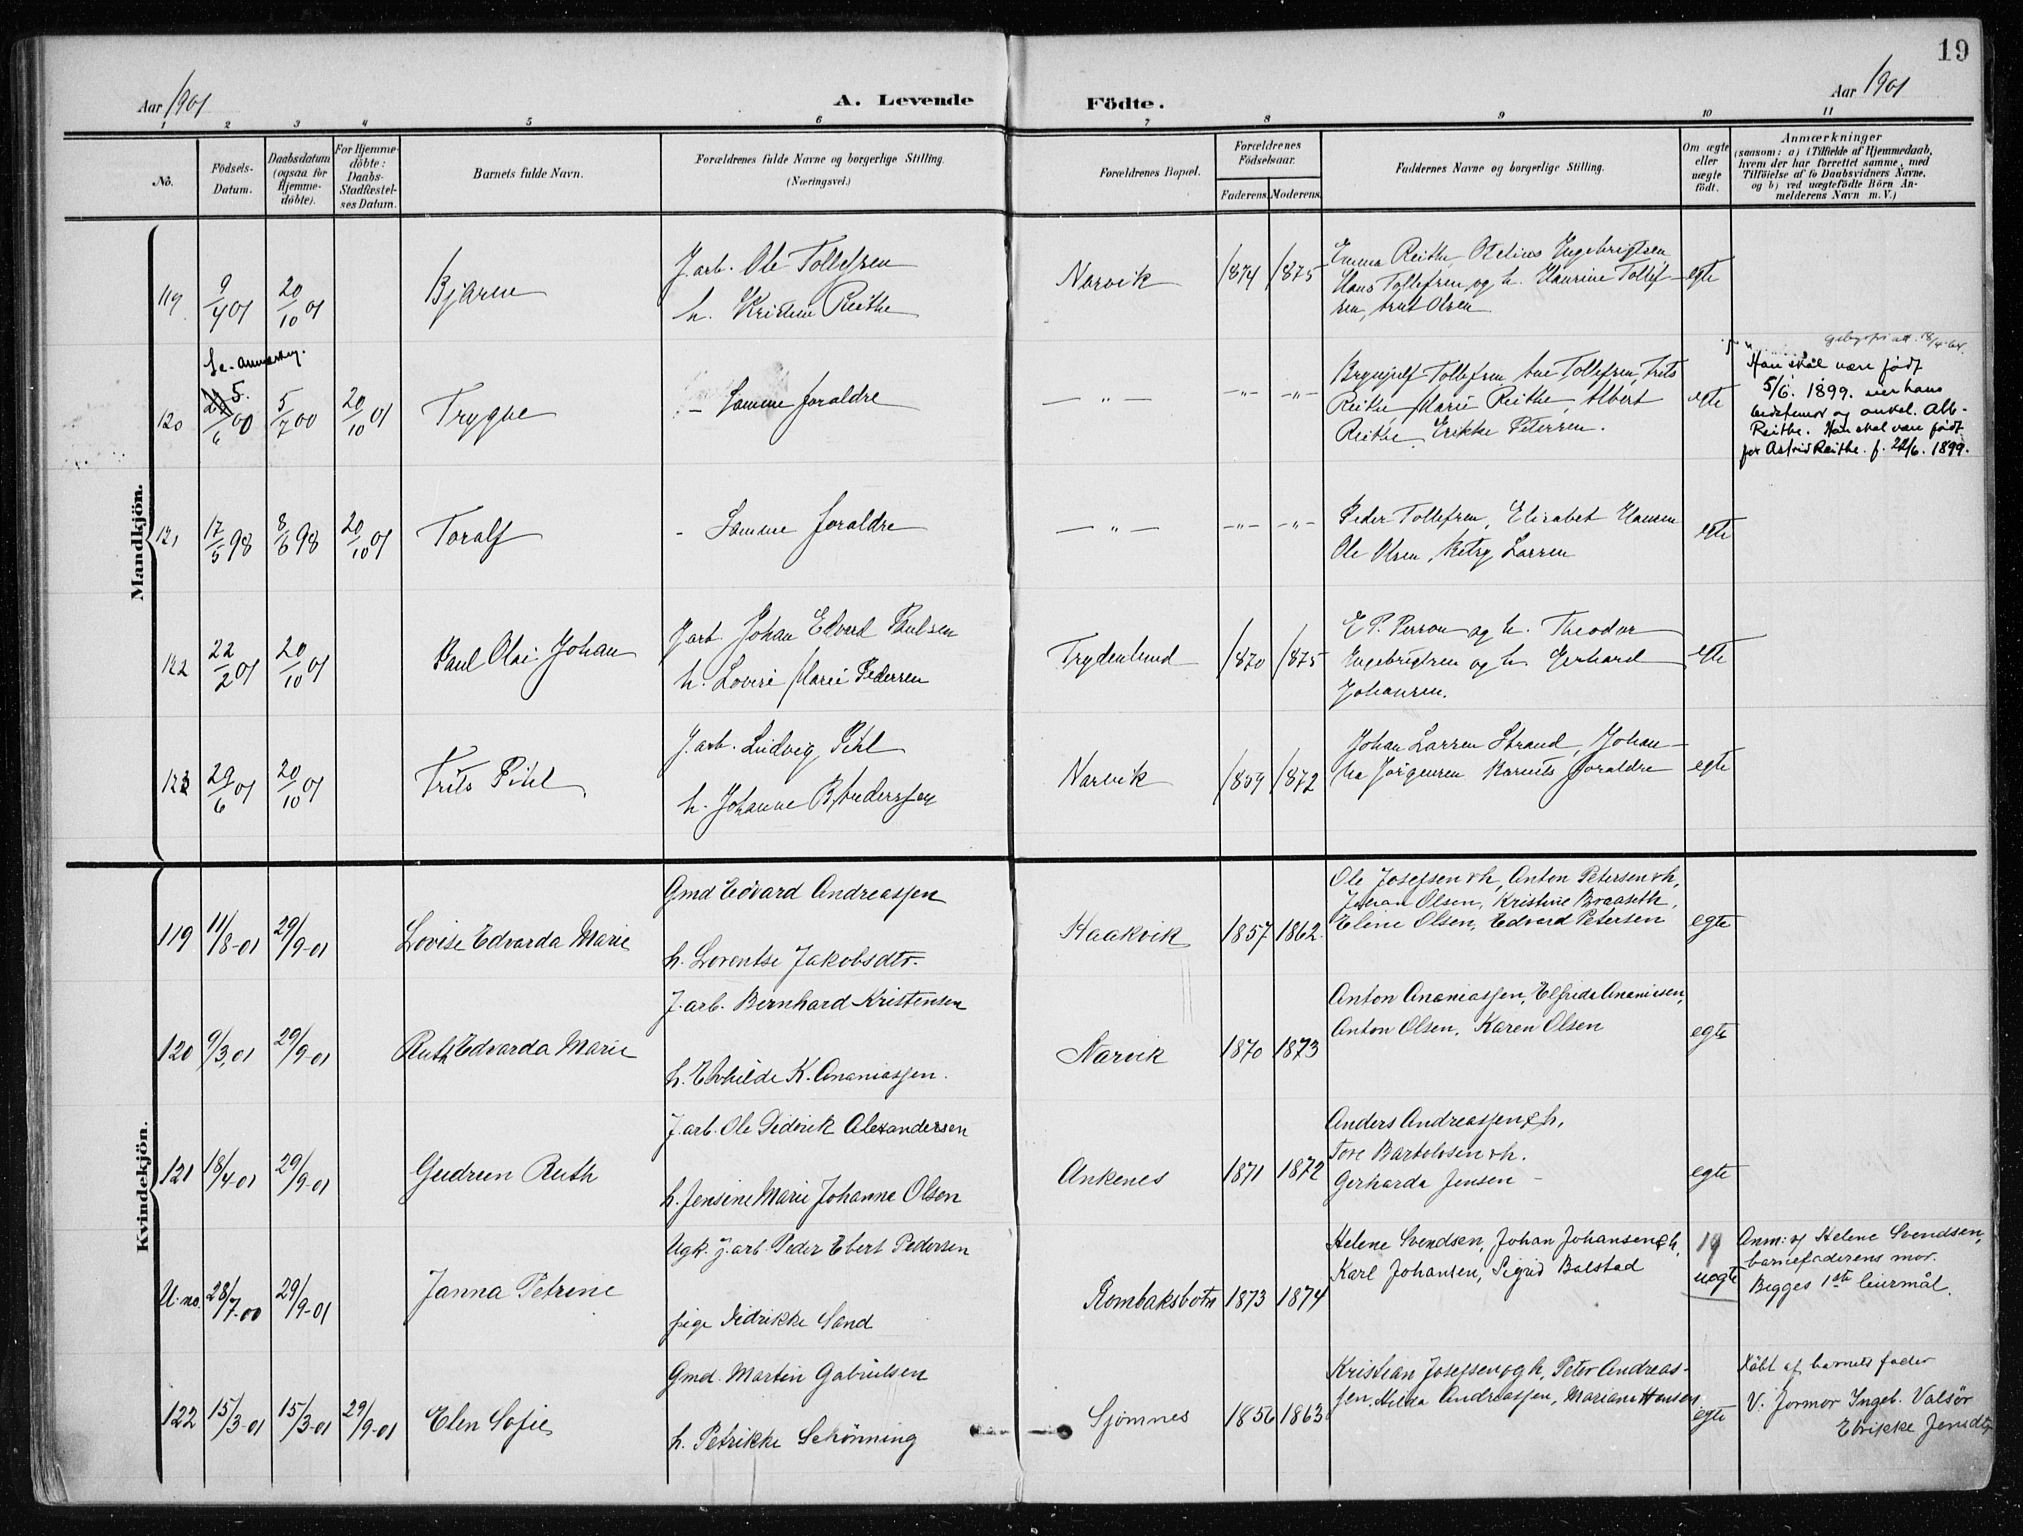 19
Aar 1901
A. Levende Födte.
Aar 1901
1 2 3 4 5 6 7 8 9 10 11
No.
Födsels-
Datum.
Daabsdatum
(ogsaa for
Hjemme-
döbte).
For Hjemme-
döbte:
Daabs-
Stadfæstel-
ses Datum.
Barnets fulde Navn.
Forældrenes fulde Navne og borgerlige Stilling.
(Næringsvei.)
Forældrenes Bopæl.
Forældrenes
Födselsaar.
Faderens. Moderens.
Faddernes Navne og borgerlige Stilling.
Om ægte
eller
uægte
födt.
Anmærkninger
(saasom: a) i Tilfælde af Hjemmedaab,
hvem der har forrettet samme, med
Tilföielse af to Daabsvidners Navne,
og b) ved uægtefödte Börn An-
melderens Navn m. V.)
Mandkjön.
119 9/4 01 20/10 01 Bjarne
J. arb. Ole Tollefsen
h. Kristine Reithe
Narvik 1874 1875
Emma Reithe Otelius Ingebrigtsen
Hans Tollefsen og h. Haurine Tollef-
sen, Olsen
egte
Se. anmerkn.
120 5. 6 00 5/7 00 20/10 01 Trygve
- Samme foraldre
— " — -"- -"-
Brynjulf Tollefsen Ane Tollefsen, Frits
Reithe Marie Reithe, Albert
Reithe, Erikke Petersen.
egte
Han skal være født
5/6. 1899. hans
bedstemor og onkel. Alb-
Reithe. Han skal være født
før Astrid Reithe. f. 22/6. 1899.
121 17/5 98 8/6 98 20/10 01 Toralf
- Samme foraldre
— " — -"- -"-
Peder Tollefsen, Elisabet Hansen
Ole Olsen, Betsy Larsen
egte
122 22/2 01 20/10 01 Paul Olai Johan
J. arb. Johan Edvard Paulsen
h. Lovise Marie Pedersen
Frydenlund 1870 1875
E P. Person og h. Theodor
Ingebrigtsen og h Gerhard
Johansen.
egte
123 29/6 01 20/10 01 Frits Pihl
J. arb. Ludvig Pihl
h. Johanne B. Anderssen
Narvik 1869 1872
Johan Larsen Strand, Johan-
na Jørgensen Barnets foraldre
egte
Kvindekjön.
119 11/8-01 29/9-01 Lovise Edvarda Marie
Gmd Edvard Andreassen
h. Lorentse Jakobsdtr.
Haakvik 1857 1862.
Ole Josefsen & h, Anton Petersen & h,
Johan Olsen, Kristine Braaseth,
Eline Olsen, Edvard Petersen
egte
120 9/3,01 29/9-01 Ruth Edvarda Marie
J. arb. Bernhard Kristensen
h. Ethilde K. Ananiassen.
Narvik 1870 1873
Anton Ananiassen, Elfrida Ananiesen,
Anton Olsen, Karen Olsen
egte
121 18/4-01 29/9-01 Gudrun Ruth
J. arb. Ole Didrik Alexandersen
h. Jensine Marie Johanna Olsen
Ankenes 1871 1872
Anders Andreassen & h,
Tore Bartolosen & h.
Gerharda Jensen -
egte
U. no. 28/7-00 29/9-01 Janna Petrine
Ugk. J. arb. Peder Ebert Pedersen
pige Didrikke Sand
Rombaksbotn 1873 1874
Helene Svendsen, Johan Johansen & h,
Karl Johansen, Sigrid Balstad
19
uegte
Anm: af Helene Svendsen,
barnefaderens mor.
Begges 1ste leiermål.
122 15/3-01 15/3-01 29/9-01 Elen Sofie
Gmd. Martin Gabrielsen
h. Petrikke Schønning
Sjømnes 1856 1863
Kristian Josefsen og h, Peter Andreas-
sen, Hilda Andreassen, Mariane Hansen
egte
Døbt af barnets fader
V. Jormor Ingeb. Valsør
Elrikke Jensdtr